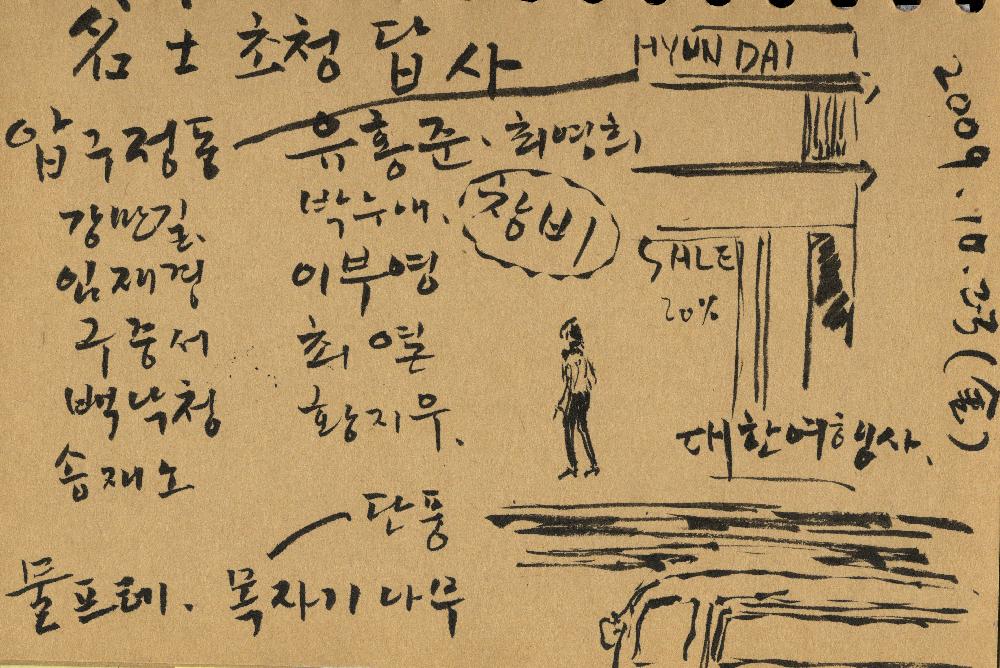 名士 초청 답사
HYUNDAI
압구정동
유홍준. 최영희
강만길.
박누애.
창비
임재경
이부영
구중서
최열
백낙청
황지우.
송재소
SALE
20%
대한여행사.
단풍
물프레. 목자기나무
2009. 10. 23 (金)